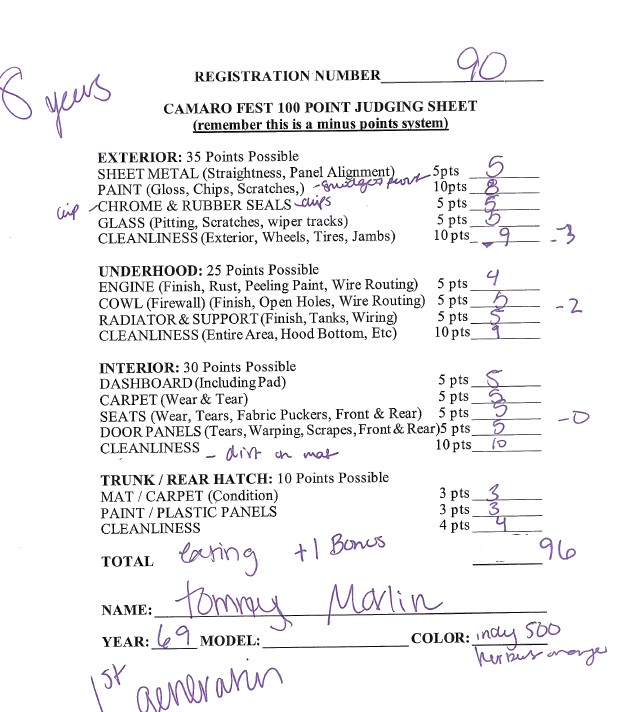 8 years
REGISTRATION NUMBER 90
CAMARO FEST 100 POINT JUDGING SHEET
(remember this is a minus points system)
EXTERIOR: 35 Points Possible
SHEET METAL (Straightness, Panel Alignment) 5pts 5
PAINT (Gloss, Chips, Scratches,) - smudges 10pts 8
chip - CHROME & RUBBER SEALS - chips 5 pts 5
GLASS (Pitting, Scratches, wiper tracks) 5 pts 5
CLEANLINESS (Exterior, Wheels, Tires, Jambs) 10 pts 9 -3
UNDERHOOD: 25 Points Possible
ENGINE (Finish, Rust, Peeling Paint, Wire Routing) 5 pts 4
COWL (Firewall) (Finish, Open Holes, Wire Routing) 5 pts 5 -2
RADIATOR & SUPPORT (Finish, Tanks, Wiring) 5 pts 5
CLEANLINESS (Entire Area, Hood Bottom, Etc) 10 pts 9
INTERIOR: 30 Points Possible
DASHBOARD (Including Pad) 5 pts 5
CARPET (Wear & Tear) 5 pts 5
SEATS (Wear, Tears, Fabric Puckers, Front & Rear) 5 pts 5 -0
DOOR PANELS (Tears, Warping, Scrapes, Front & Rear) 5 pts 5
CLEANLINESS - dirt on mat 10 pts 10
TRUNK / REAR HATCH: 10 Points Possible
MAT / CARPET (Condition) 3 pts 3
PAINT / PLASTIC PANELS 3 pts 3
CLEANLINESS 4 pts 4
TOTAL +1 Bonus 96
NAME: Tommy Marlin
YEAR: 69 MODEL: COLOR: indy 500
orange
1st generation